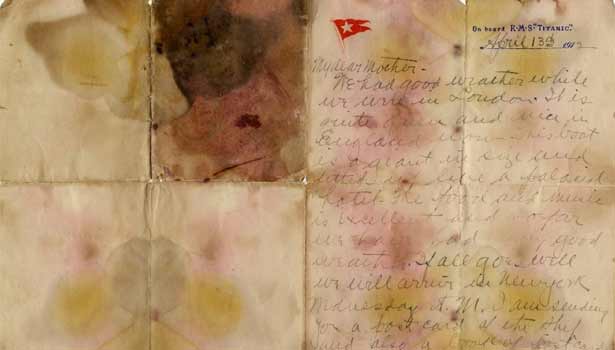 On board R.M.S. "TITANIC."
April 13th 1912
My dear Mother -
We had good weather while
we were in London. It is
quite green and nice in
England now. This boat
is a giant in size and
fitted up like a palacial
hotel. The food and music
is excellent and so far
we have had good
weather. If all goes well
we will arrive in New York
Wednesday A.M. I am sending
you a post card of the ship
and also a book of post cards